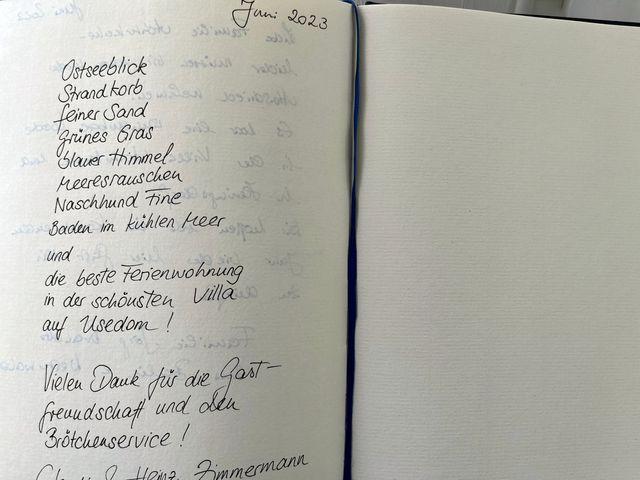 Juni 2023
Ostseeblick
Strandkorb
feiner Sand
grünes Gras
blauer Himmel
Meeresrauschen
Naschhund Fine
Baden im kühlen Meer
und
die beste Ferienwohnung
in der schönsten Villa
auf Usedom!
Vielen Dank für die Gast-
freundschaft und den
Brötchenservice!
Heinz Zimmermann